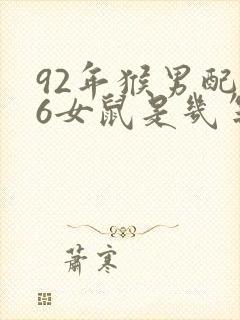 92年猴男配
6女鼠是几
萧寒